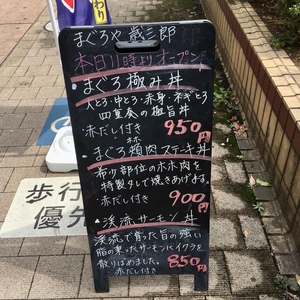 まぐろや 歳三郎
本日11時よりオープン
・まぐろ極み丼
大とろ・中とろ・赤身・ネギとろ
四重奏の極旨丼
・赤だし付き 950円
ホホ
・まぐろ頬肉ステーキ丼
希少部位のホホ肉を
特製タレで焼きあげます。
・赤だし付き 900円
・渓流サーモン丼
渓流で育った旨の強い
脂の乗ったサーモンにイクラを
散りばめました。
赤だし付き 850円
歩行
優先